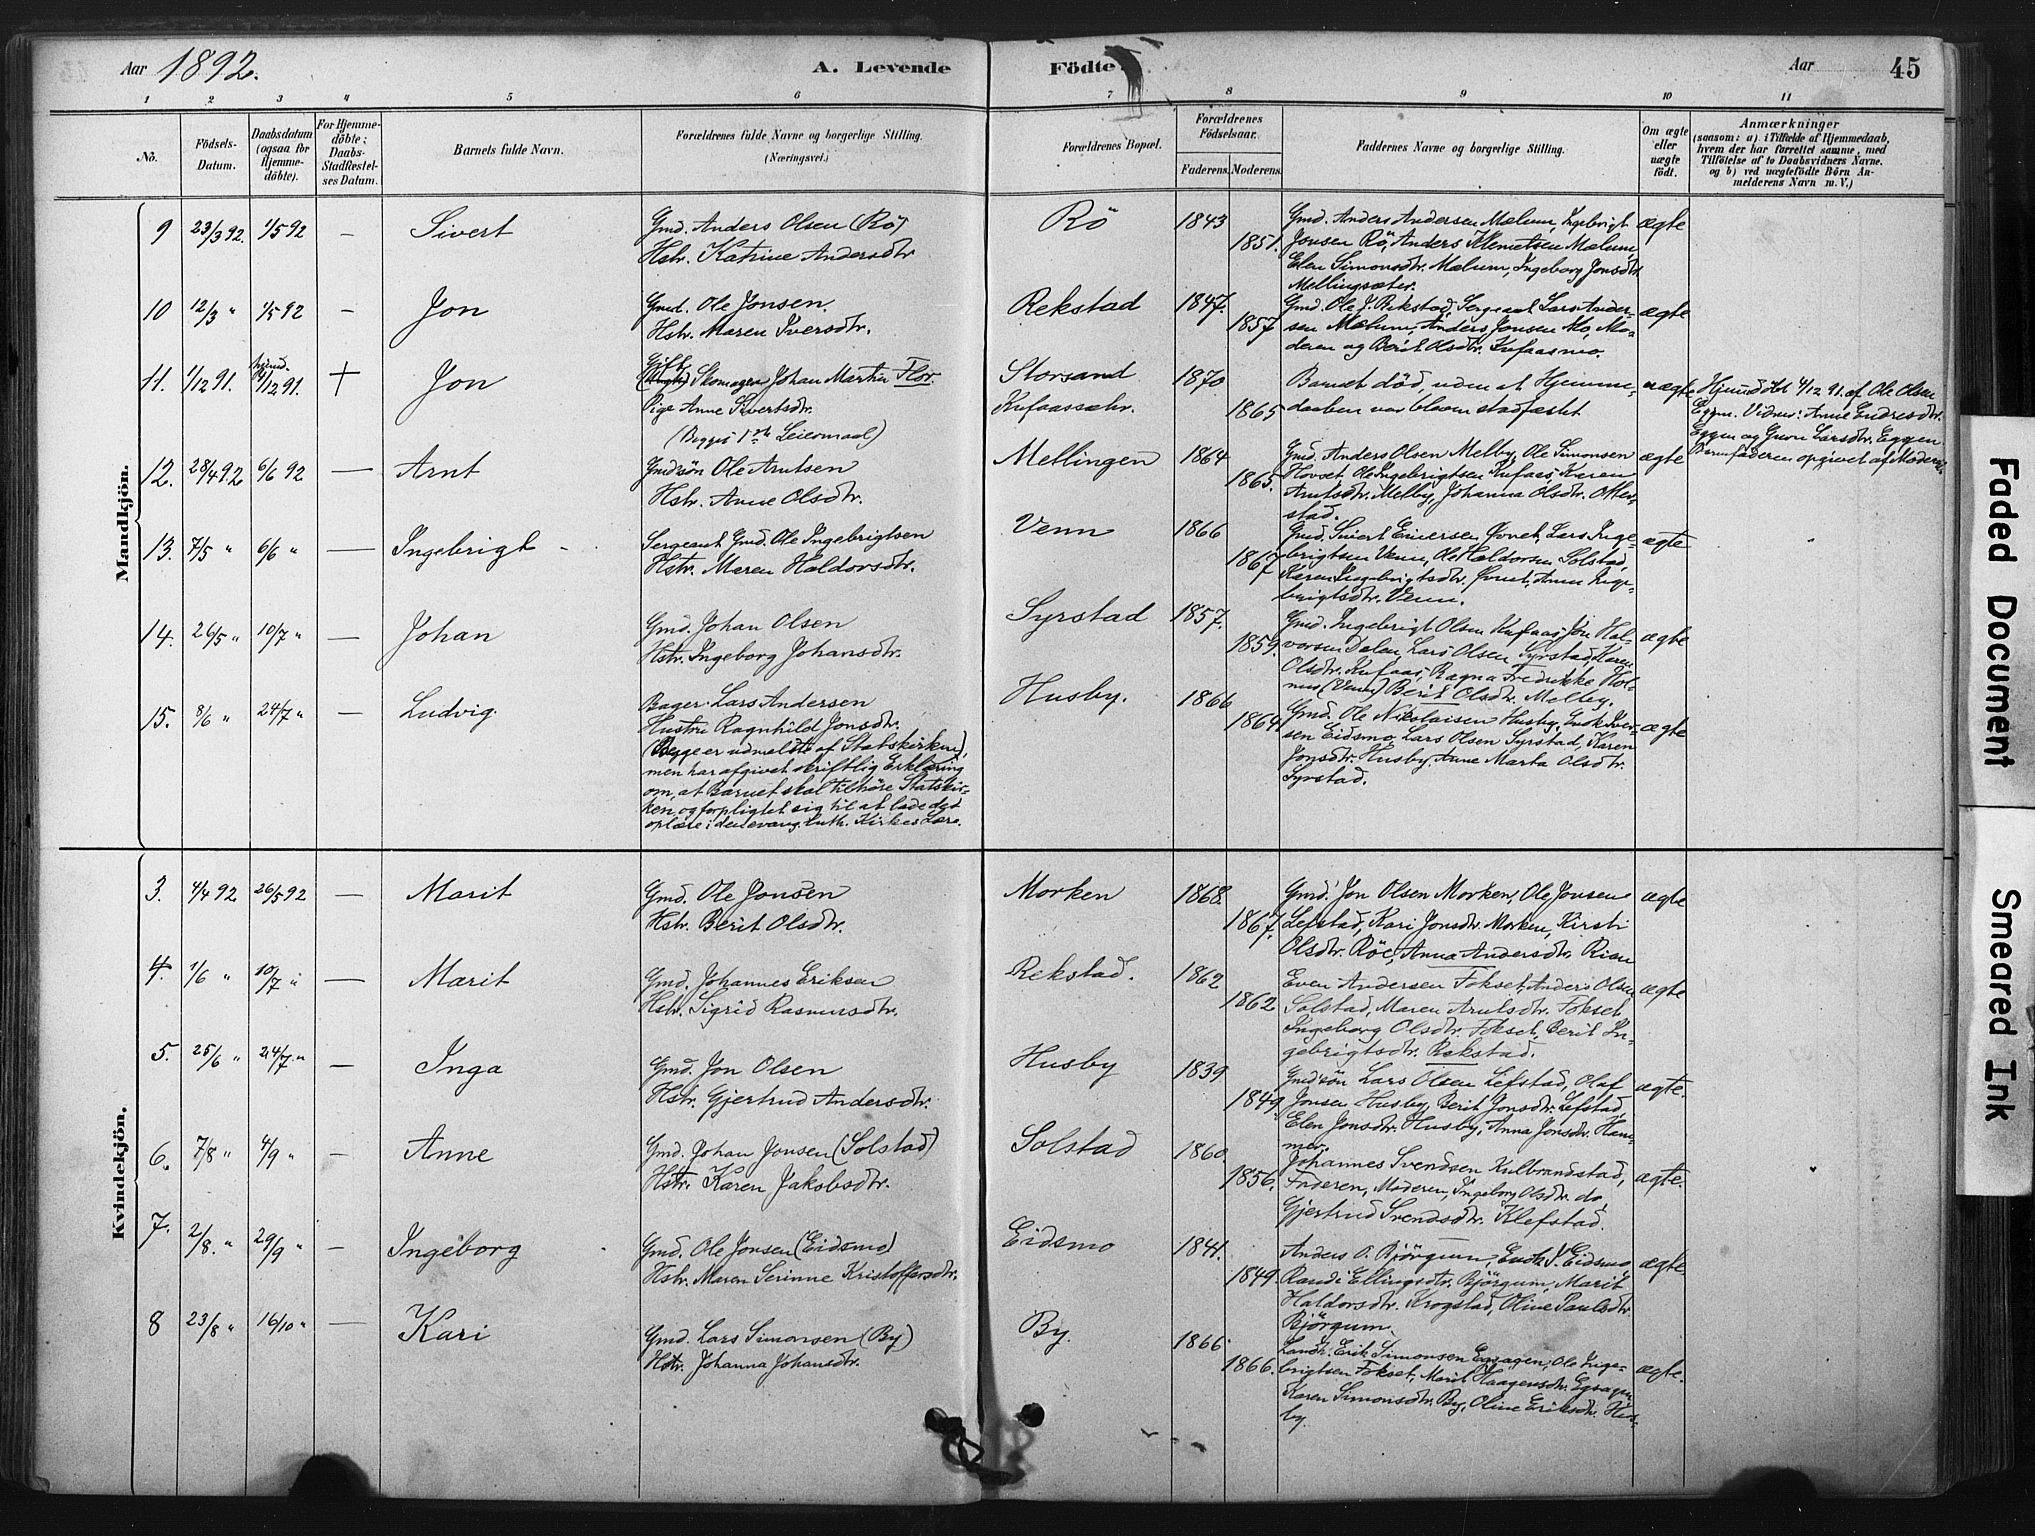 Aar 1892.
A. Levende Födte.
Aar
45
1 2 3 4 5 6 7 8 9 10 11
No.
Födsels-Datum.
Daabsdatum (ogsaa for Hjemme-döbte).
For Hjemme-döbte; Daabs-Stadfæstel-ses Datum.
Barnets fulde Navn.
Forældrenes fulde Navne og borgerlige Stilling. (Næringsvei.)
Forældrenes Bopæl.
Forældrenes Födselsaar.
Faderens. Moderens.
Faddernes Navne og borgerlige Stilling.
Om ægte eller uægte födt.
Anmærkninger
(saasom: a) i Tilfælde af Hjemmedaab, hvem der har forrettet samme, med Tilföielse af to Daabsvidners Navne. og b) ved uægtefödte Börn An-melderens Navn m. V.)
Mandkjön.
9 23/3 92. 1/5 92 – Sivert
Gmd. Anders Olsen (Rö)
Hstr. Katrine Andersdtr
Rö 1843 1851.
Gmd. Anders Andersen Mælum, Ingebrigt
Jonsen Rö, Anders Klemetsen Mælum,
Elen Simonsdtr. Mælum, Ingeborg Jonsdtr
Mellingsæter.
ægte
10 12/3 " 1/5 92 – Jon
Gmd. Ole Jonsen.
Hstr. Maren Iversdtr.
Rekstad 1847. 1857
Gmd. Ole J. Rekstad, Sergeant Lars Ander-
sen Mælum, Anders Jonsen Mo, Mo-
deren og Berit Olsdtr. Kufaasmo.
ægte
11. 1/12 91. 4/12 91. + Jon
Gift
Skomager Johan Martin Flor-
Pige Anne Sivertsdtr.
(Begges 1ste Leiermaal)
Storsand
Kufaassætr.
1870 1865
Barnet död, uden at Hjemme-
daaben var bleven stadfæstet
uægte
Hjemdöbt 4/12 91. af Ole Olsen
Eggen. Vidner: Anne Endresdtr.
Eggen og Guru Larsdtr. Eggen.
Barnefaderen opgivet af Moderen.
12. 28/4 92 6/6 92 — Arnt
Gmdsön Ole Arntsen
Hstr. Anne Olsdtr.
Mellingen 1864 1865.
Gmd. Anders Olsen Melby, Ole Simonsen
Hovset, Ole Ingebrigtsen Kufaas, Karen
Arntsdtr. Melby, Johanna Olsdtr. Otter-
stad.
ægte
13. 7/5 " 6/6 " — Ingebrigt
Sergeant Gmd. Ole Ingebrigtsen
Hstr. Maren Haldorsdtr.
Venn 1866 1867
Gmd. Sivert Einersen Övret, Lars Inge-
brigtsen Venn, Ole Haldorsen Solstad,
Karen Ingebrigtsdtr. Övret, Anne Inge-
brigtsdtr. Venn.
ægte
14. 26/5 " 10/7 " — Johan
Gmd. Johan Olsen
Hstr. Ingeborg Johansdtr.
Syrstad 1857. 1859.
Gmd. Ingebrigt Olsen Kufaas, Jon Hal-
vorsen Dalen, Lars Olsen Syrstad, Karen
Olsdtr. Kufaas, Ragna Fredrikke Hol-
mes (Venn) Berit Olsdtr. Melby.
ægte
15. 8/6 " 24/7 " — Ludvig.
Bager Lars Andersen
Hustru Ragnhild Jonsdtr.
(Begge er udmeldte af Statskirken),
men har afgivet skriftlig Erklæring
om, at Barnet skal tilhöre Statskir-
ken, og forpligtet sig til at lade det
oplære i den evang. luth. Kirkes Lære.
Husby. 1866 1864
Gmd. Ole Nikolaisen Husby, Isak Iver-
sen Eidsmo, Lars Olsen Syrstad, Karen
Jonsdtr. Husby, Anne Marta Olsdtr.
Syrstad.
ægte
Kvindekjön.
3. 4/4 92 26/5 92 — Marit
Gmd. Ole Jonsen
Hstr. Berit Olsdtr.
Morken 1868. 1867.
Gmd. Jon Olsen Morken, Ole Jonsen
Lefstad, Kari Jonsdtr. Morken, Kirsti
Olsdtr. Röe, Anna Andersdtr. Rian
ægte
4. 1/6 " 10/7 " — Marit
Gmd. Johannes Eriksen
Hstr. Sigrid Rasmusdtr.
Rekstad. 1862 1862
Even Andersen Fokset, Anders Olsen
Solstad, Maren Arntsdtr. Fokset,
Ingeborg Olsdtr. Fokset, Berit In-
gebrigtsdtr. Rekstad.
ægte
5. 25/6 " 24/7 " – Inga
Gmd. Jon Olsen
Hstr. Gjertrud Andersdtr.
Husby 1839 1849.
Gmdsön Lars Olsen Lefstad, Olaf
Jonsen Husby, Berit Jonsdtr. Lefstad,
Elen Jonsdtr. Husby, Anna Jonsdtr. Ham-
mer.
ægte.
6. 7/8 " 4/9 " – Anne
Gmd. Johan Jonsen (Solstad)
Hstr. Karen Jakobsdtr.
Solstad 1860. 1856.
Johannes Svendsen Kulbrandstad,
Faderen, Moderen, Ingeborg Olsdtr. do,
Gjertrud Svendsdtr. Klefstad.
ægte.
7. 2/8. " 29/9 " – Ingeborg
Gmd. Ole Jonsen (Eidsmo)
Hstr. Maren Serinne Kristoffersdtr.
Eidsmo 1841. 1849.
Anders O. Björgum, J. Eidsmo,
Randi Ellingsdtr. Björgum, Marit
Haldorsdtr. Krogstad, Oline Paulsdtr.
Björgum.
ægte
8 23/8 " 16/10 " — Kari
Gmd. Lars Simonsen (By)
Hstr. Johanna Johansdtr.
By. 1866. 1866.
Landh. Erik Simonsen Egsagen, Ole Inge-
brigtsen Fokset, Marit Haagensdtr. Egsagen,
Karen Simonsdtr. By, Oline Eriksdtr. Hus-
by.
ægte.
Faded Document
Smeared Ink